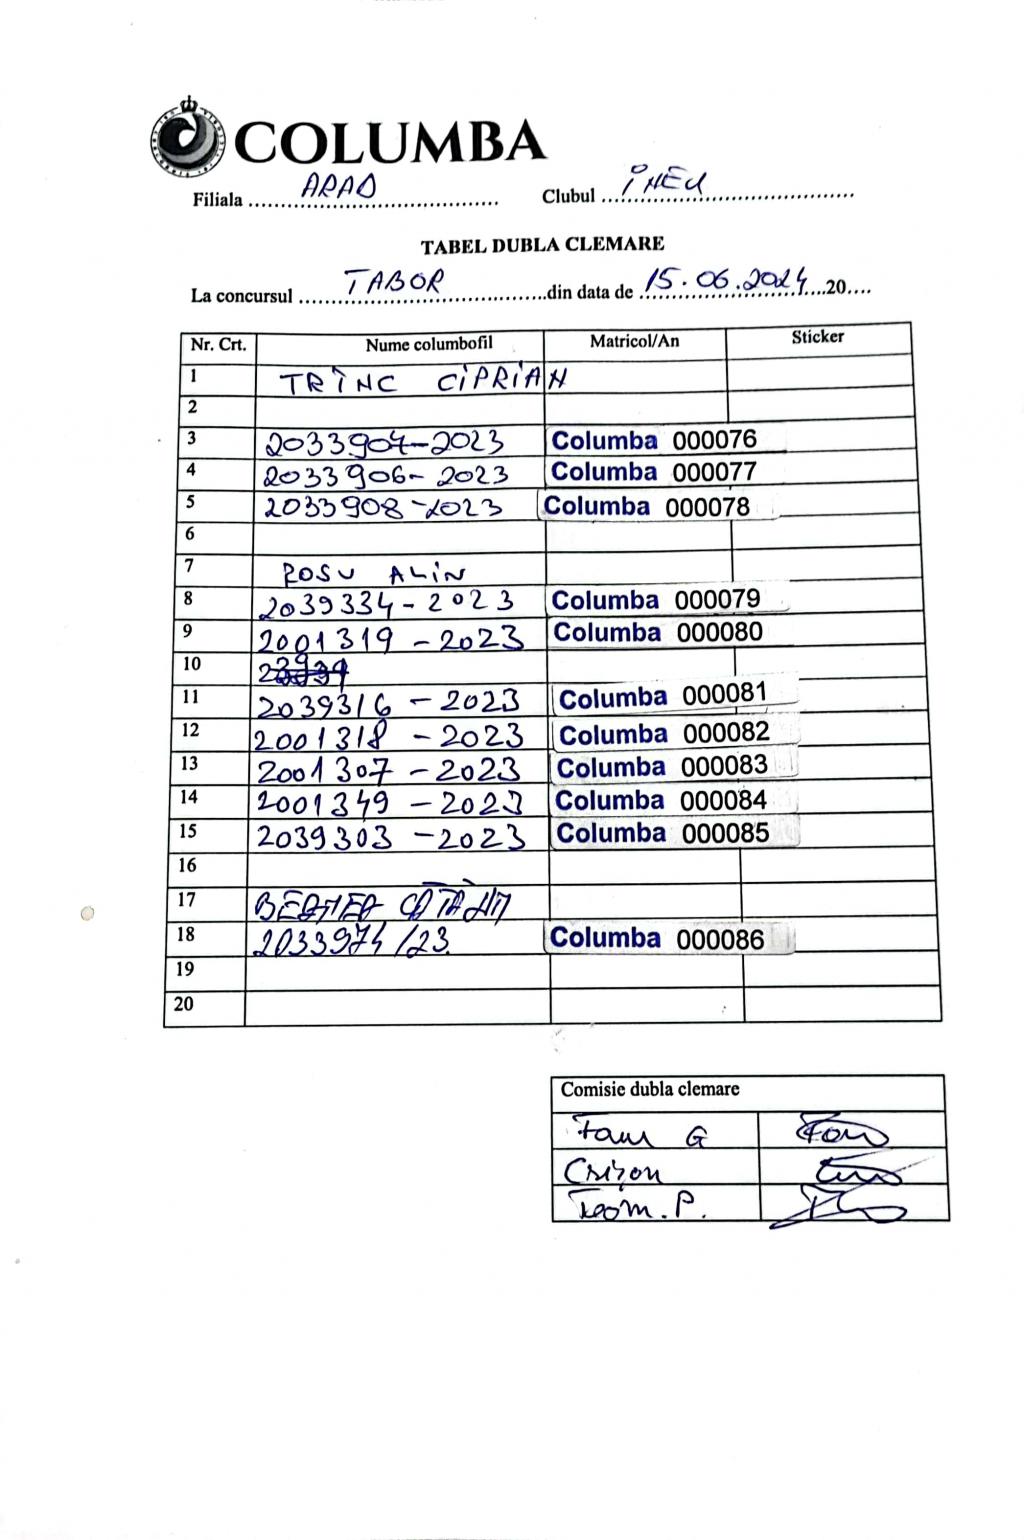 COLUMBA
Filiala ARAD Clubul INEU
TABEL DUBLA CLEMARE
La concursul TABOR din data de 15.06.2024 20....
Nr. Crt. Nume columbofil Matricol/An Sticker
1 TRINC CIPRIAN
2
3 2033907-2023 Columba 000076
4 2033906-2023 Columba 000077
5 2033908-2023 Columba 000078
6
7 ROSU ALIN
8 2039334-2023 Columba 000079
9 2001319-2023 Columba 000080
10
11 2039316-2023 Columba 000081
12 2001318-2023 Columba 000082
13 2001307-2023 Columba 000083
14 2001349-2023 Columba 000084
15 2039303-2023 Columba 000085
16
17
18 2033974/23 Columba 000086
19
20
Comisie dubla clemare
G
P.